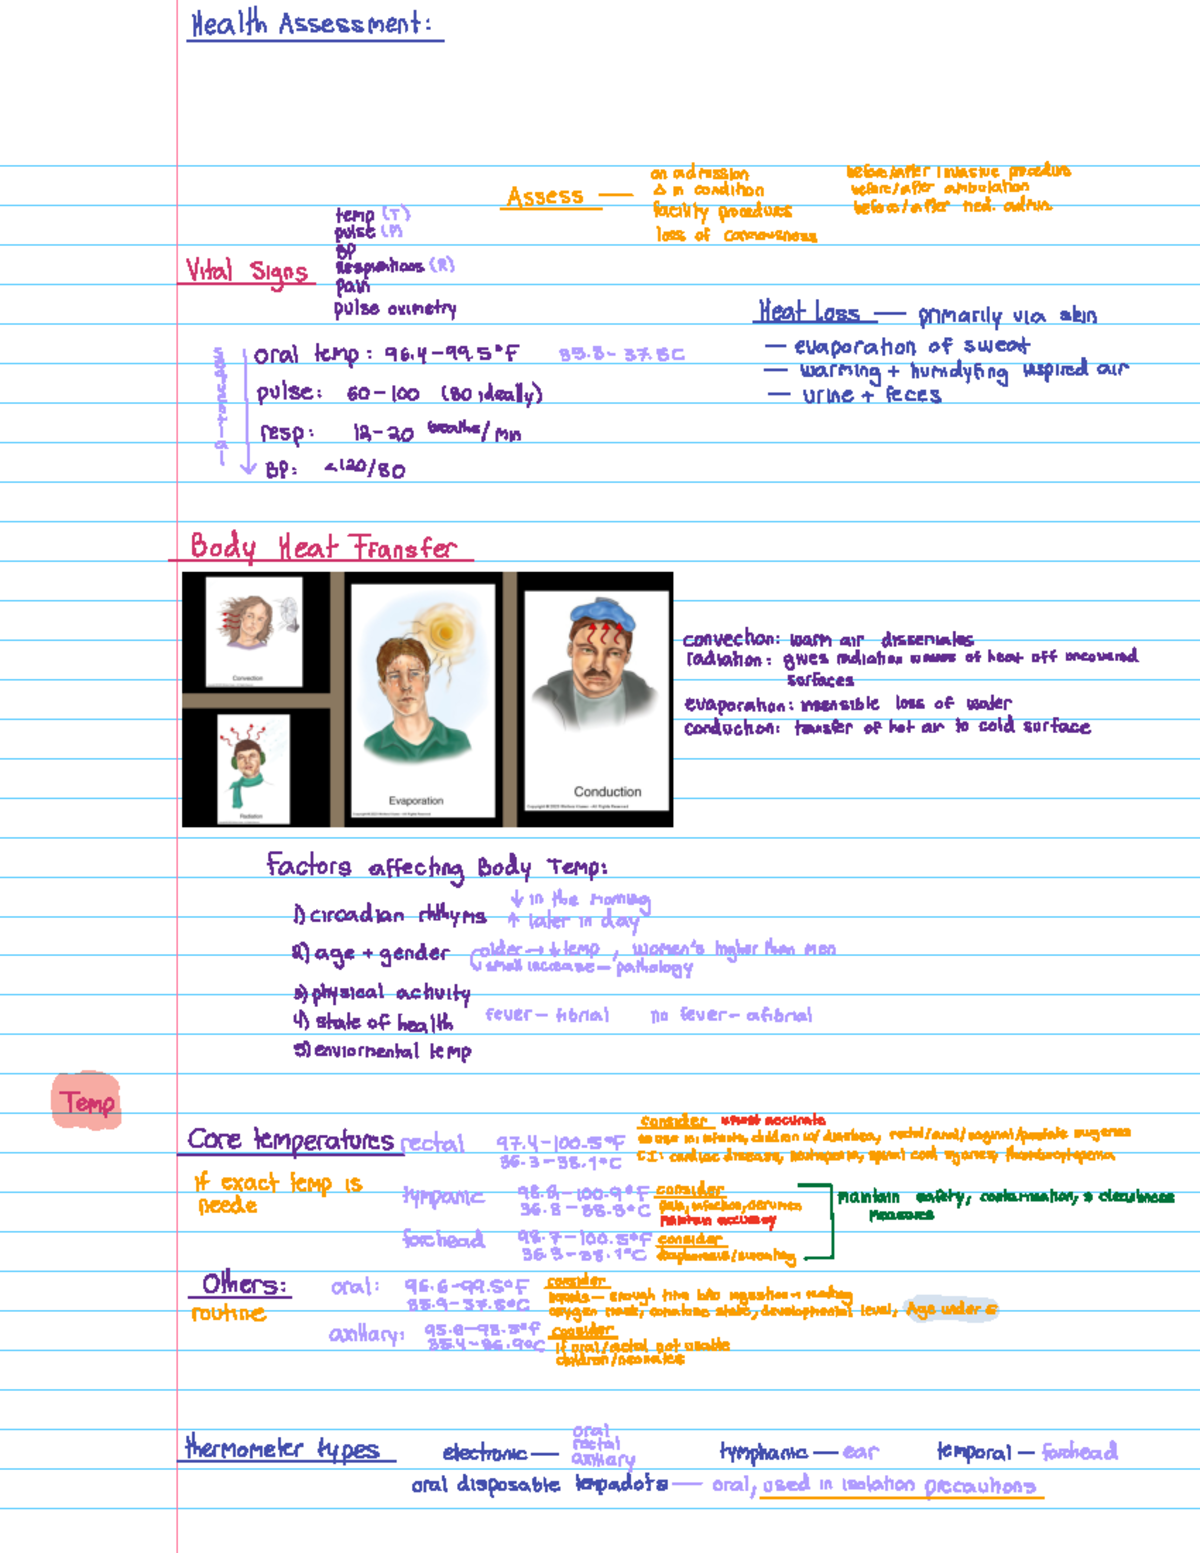 Health Assessment:
Assess —
on admission
Δ in condition
facility procedures
loss of consciousness
before/after invasive procedure
before/after ambulation
before/after med. admin.
Vital Signs
temp (T)
pulse (P)
BP
Respirations (R)
pain
pulse oximetry
oral temp: 96.4-99.5°F
pulse: 60-100 (80 ideally)
resp: 12-20 breaths/min
BP: <120/80
Heat Loss — primarily via skin
— evaporation of sweat
— warming + humidyfing inspired air
— urine + feces
Body Heat Transfer
Convection
Radiation
Evaporation
Conduction
convection: warm air
radiation: gives radiation waves of heat off uncovered
surfaces
evaporation: insensible loss of water
conduction: transfer of hot air to cold surface
Factors affecting Body Temp:
1) circadian
↓ in the morning
↑ later in day
2) age + gender
older → ↓ temp, women's higher than men
small increase — pathology
3) physical activity
4) state of health
fever - fibrial no fever - afibrial
5) enviormental temp
Temp
Core temperatures
if exact temp is
neede
rectal 97.4-100.5°F
36.3-38.1°C
consider
CI: cardiac disease, neutropenia, spinal cord
tympanic
consider
maintain accuracy
forehead 98.7-100.5°F
36.3-38.1°C
consider
diaphoresis/sweating
maintain safety, contamination, + cleanliness
measures
Others:
routine
oral: 96.6-99.5°F
35.9-37.5°C
consider
liquids — enough time b/w ingestion + reading
oxygen mask, developmental level, Age under 5
axillary:
consider
if oral/rectal not usable
children/neonates
thermometer types
electronic —
oral
rectal
axillary
tymphanic — ear
temporal — forehead
oral disposable tempadots — oral, used in isolation precautions